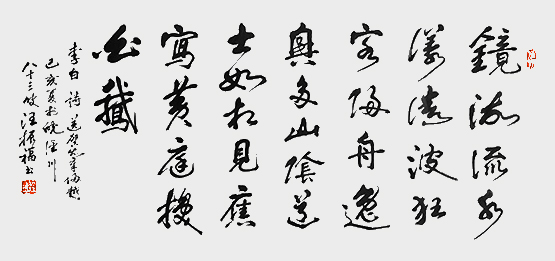 鏡湖流水
漾清波狂
客歸舟逸
興多山陰道
士如相見應
寫黃庭換
白鵝
李白詩送賀賓客歸越
己亥夏於皖涇川
八十三叟汪振福書